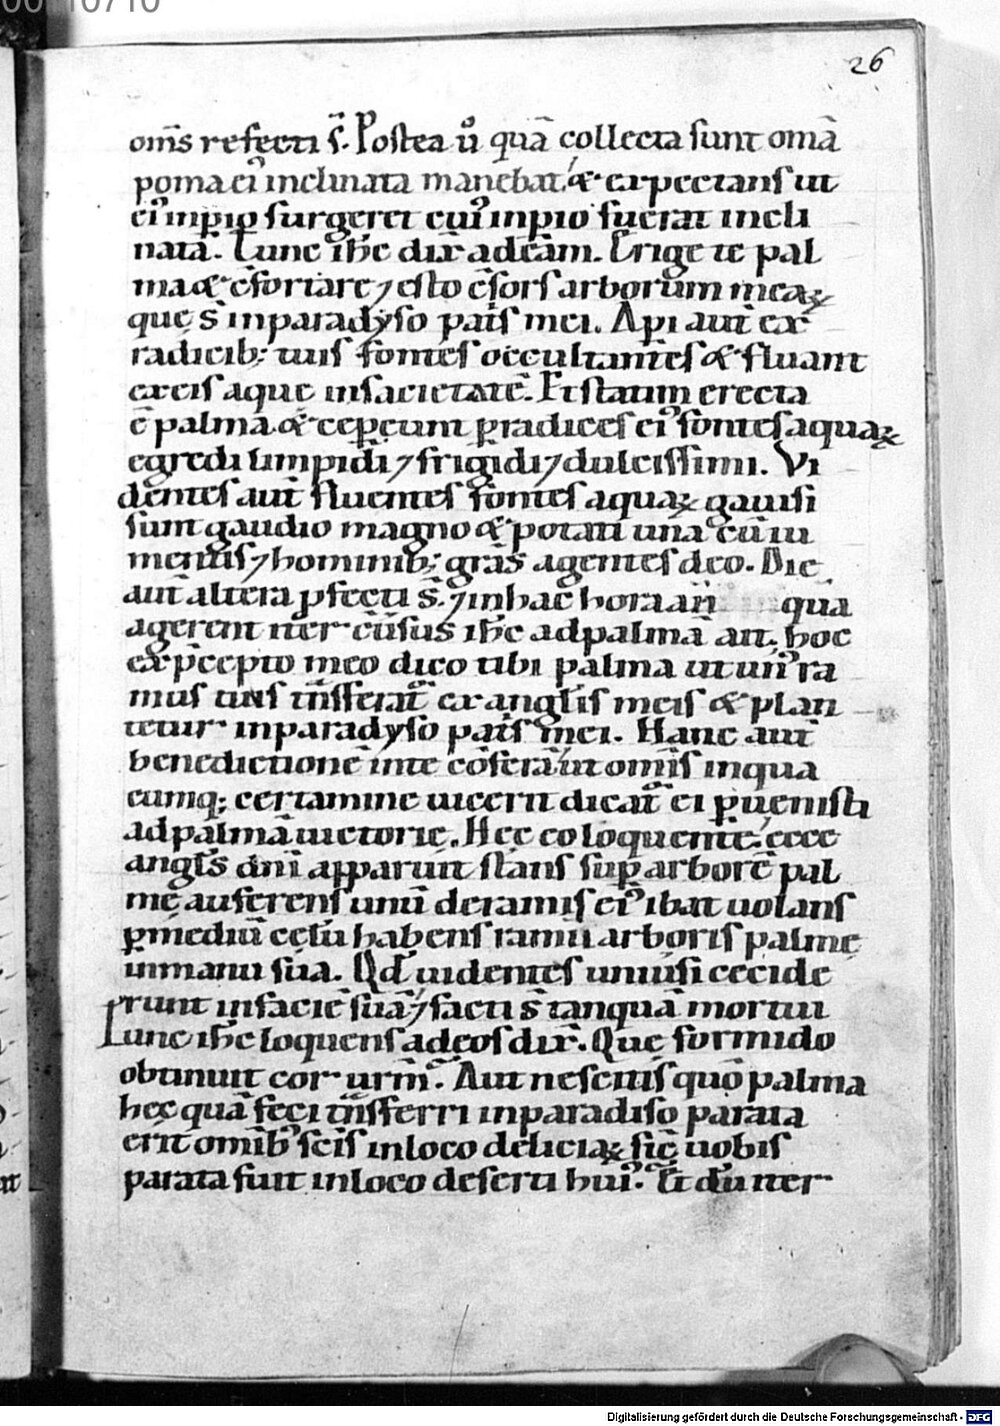 00010710
26
om̄s refecti s̄. Postea ů quā collecta sunt omā
poma ei᾽ inclinata manebat. & expectans ut
ei᾽ inpio surgeret cui᾽ inpio fuerat incli
nata. Tunc ih̄c dix̄ ad eam. Erige te pal
ma & c̄fortare ⁊ esto c̄sors arborum meaꝝ
que s̄ in paradyso pat̄s mei. Api aut̄ ex
radicib; tuis fontes occultantes & fluant
ex eis aque in sacietatē. Et statim erecta
ē palma & ceper̄unt p̱ radices ei᾽ fontes aquaꝝ
egredi limpidi ⁊ frigidi ⁊ dulcissimi. Vi
dentes aut̄ fluentes fontes aquaꝝ gauisi
sunt gaudio magno & potati una cū iu
mentis ⁊ hominib; grās agentes deo. Die
aut̄ altera p̱fecti s̄. ⁊ in hac hora an̄ qua
agerent iter c̄uersus ih̄c ad palmā ait. hoc
ex p̄cepto meo dico tibi palma ut un᾽ ra
mus tuus tn̄sferat᷑ ex angl̄is meis & plan
tetur in paradyso pat̄s mei. Hanc aut̄
benedictionē in te cōferā ut om̄is in qua
cumq; certamine uicerit dicat᷑ ei p̱uenisti
ad palmā uictorie. Hec eo loquente. ecce
angl̄s dn̄i apparuit stans sup̱ arborē pal
me auferens unū de ramis ei᾽ ibat uolans
p̱ mediū celū habens ramū arboris palme
in manu sua. Qd̄ uidentes uniu᾽si cecide
runt in faciē suā ⁊ facti s̄ tanquā mortui
Tunc ih̄c loquens ad eos dix̄. Que formido
obtinuit cor ur̄m. Aut nescitis quō palma
hec quā feci tn̄sferri in paradiso parata
erit omib᾽ sc̄is in loco deliciaꝝ sic̄ uobis
parata fuit in loco deserti hui᾽. Et dū iter
Digitalisierung gefördert durch die Deutsche Forschungsgemeinschaft - DFG